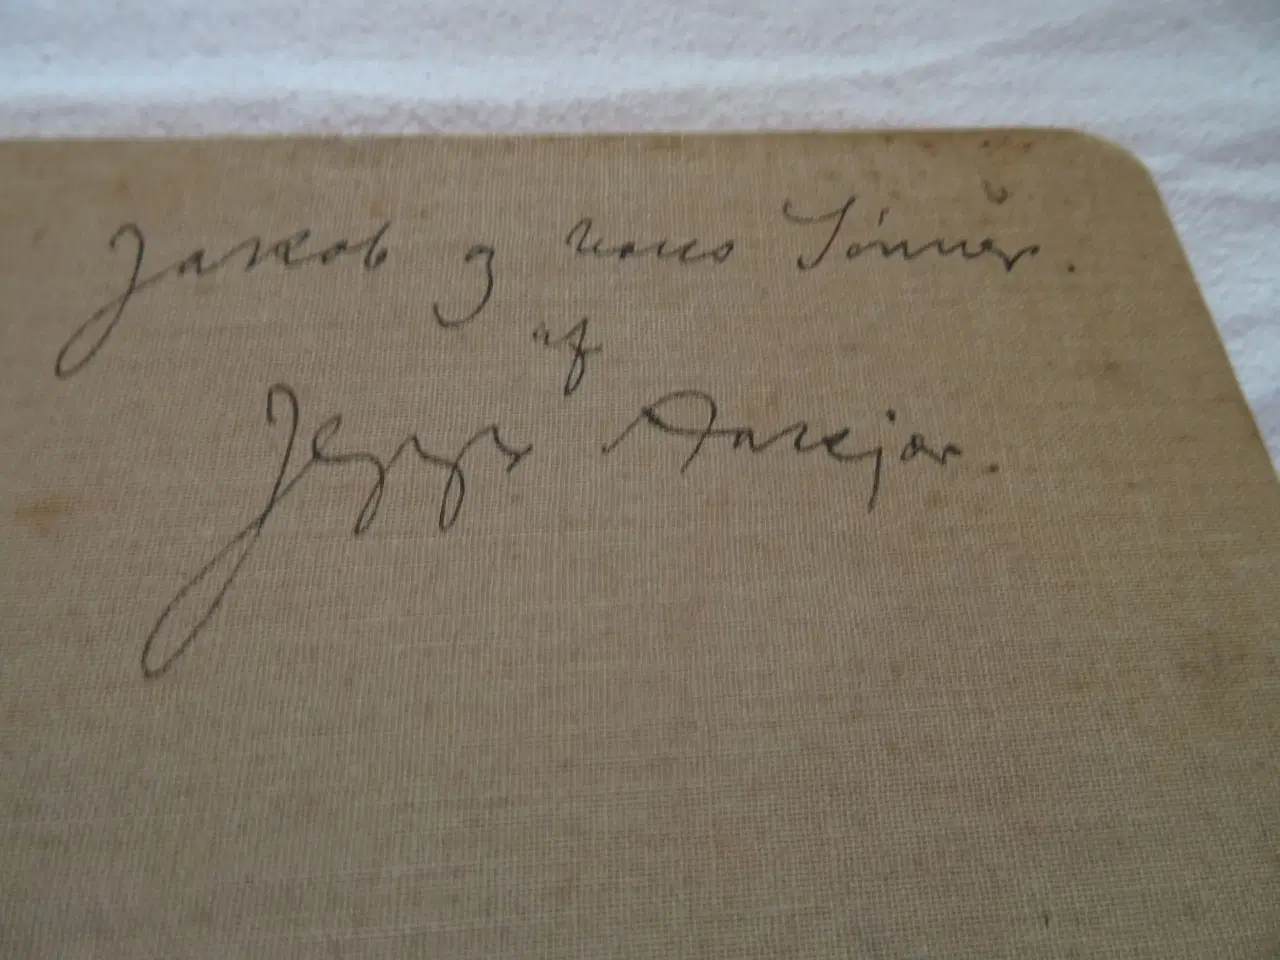 Jakob og hans Sønner.
af
Jeppe Aakjær.